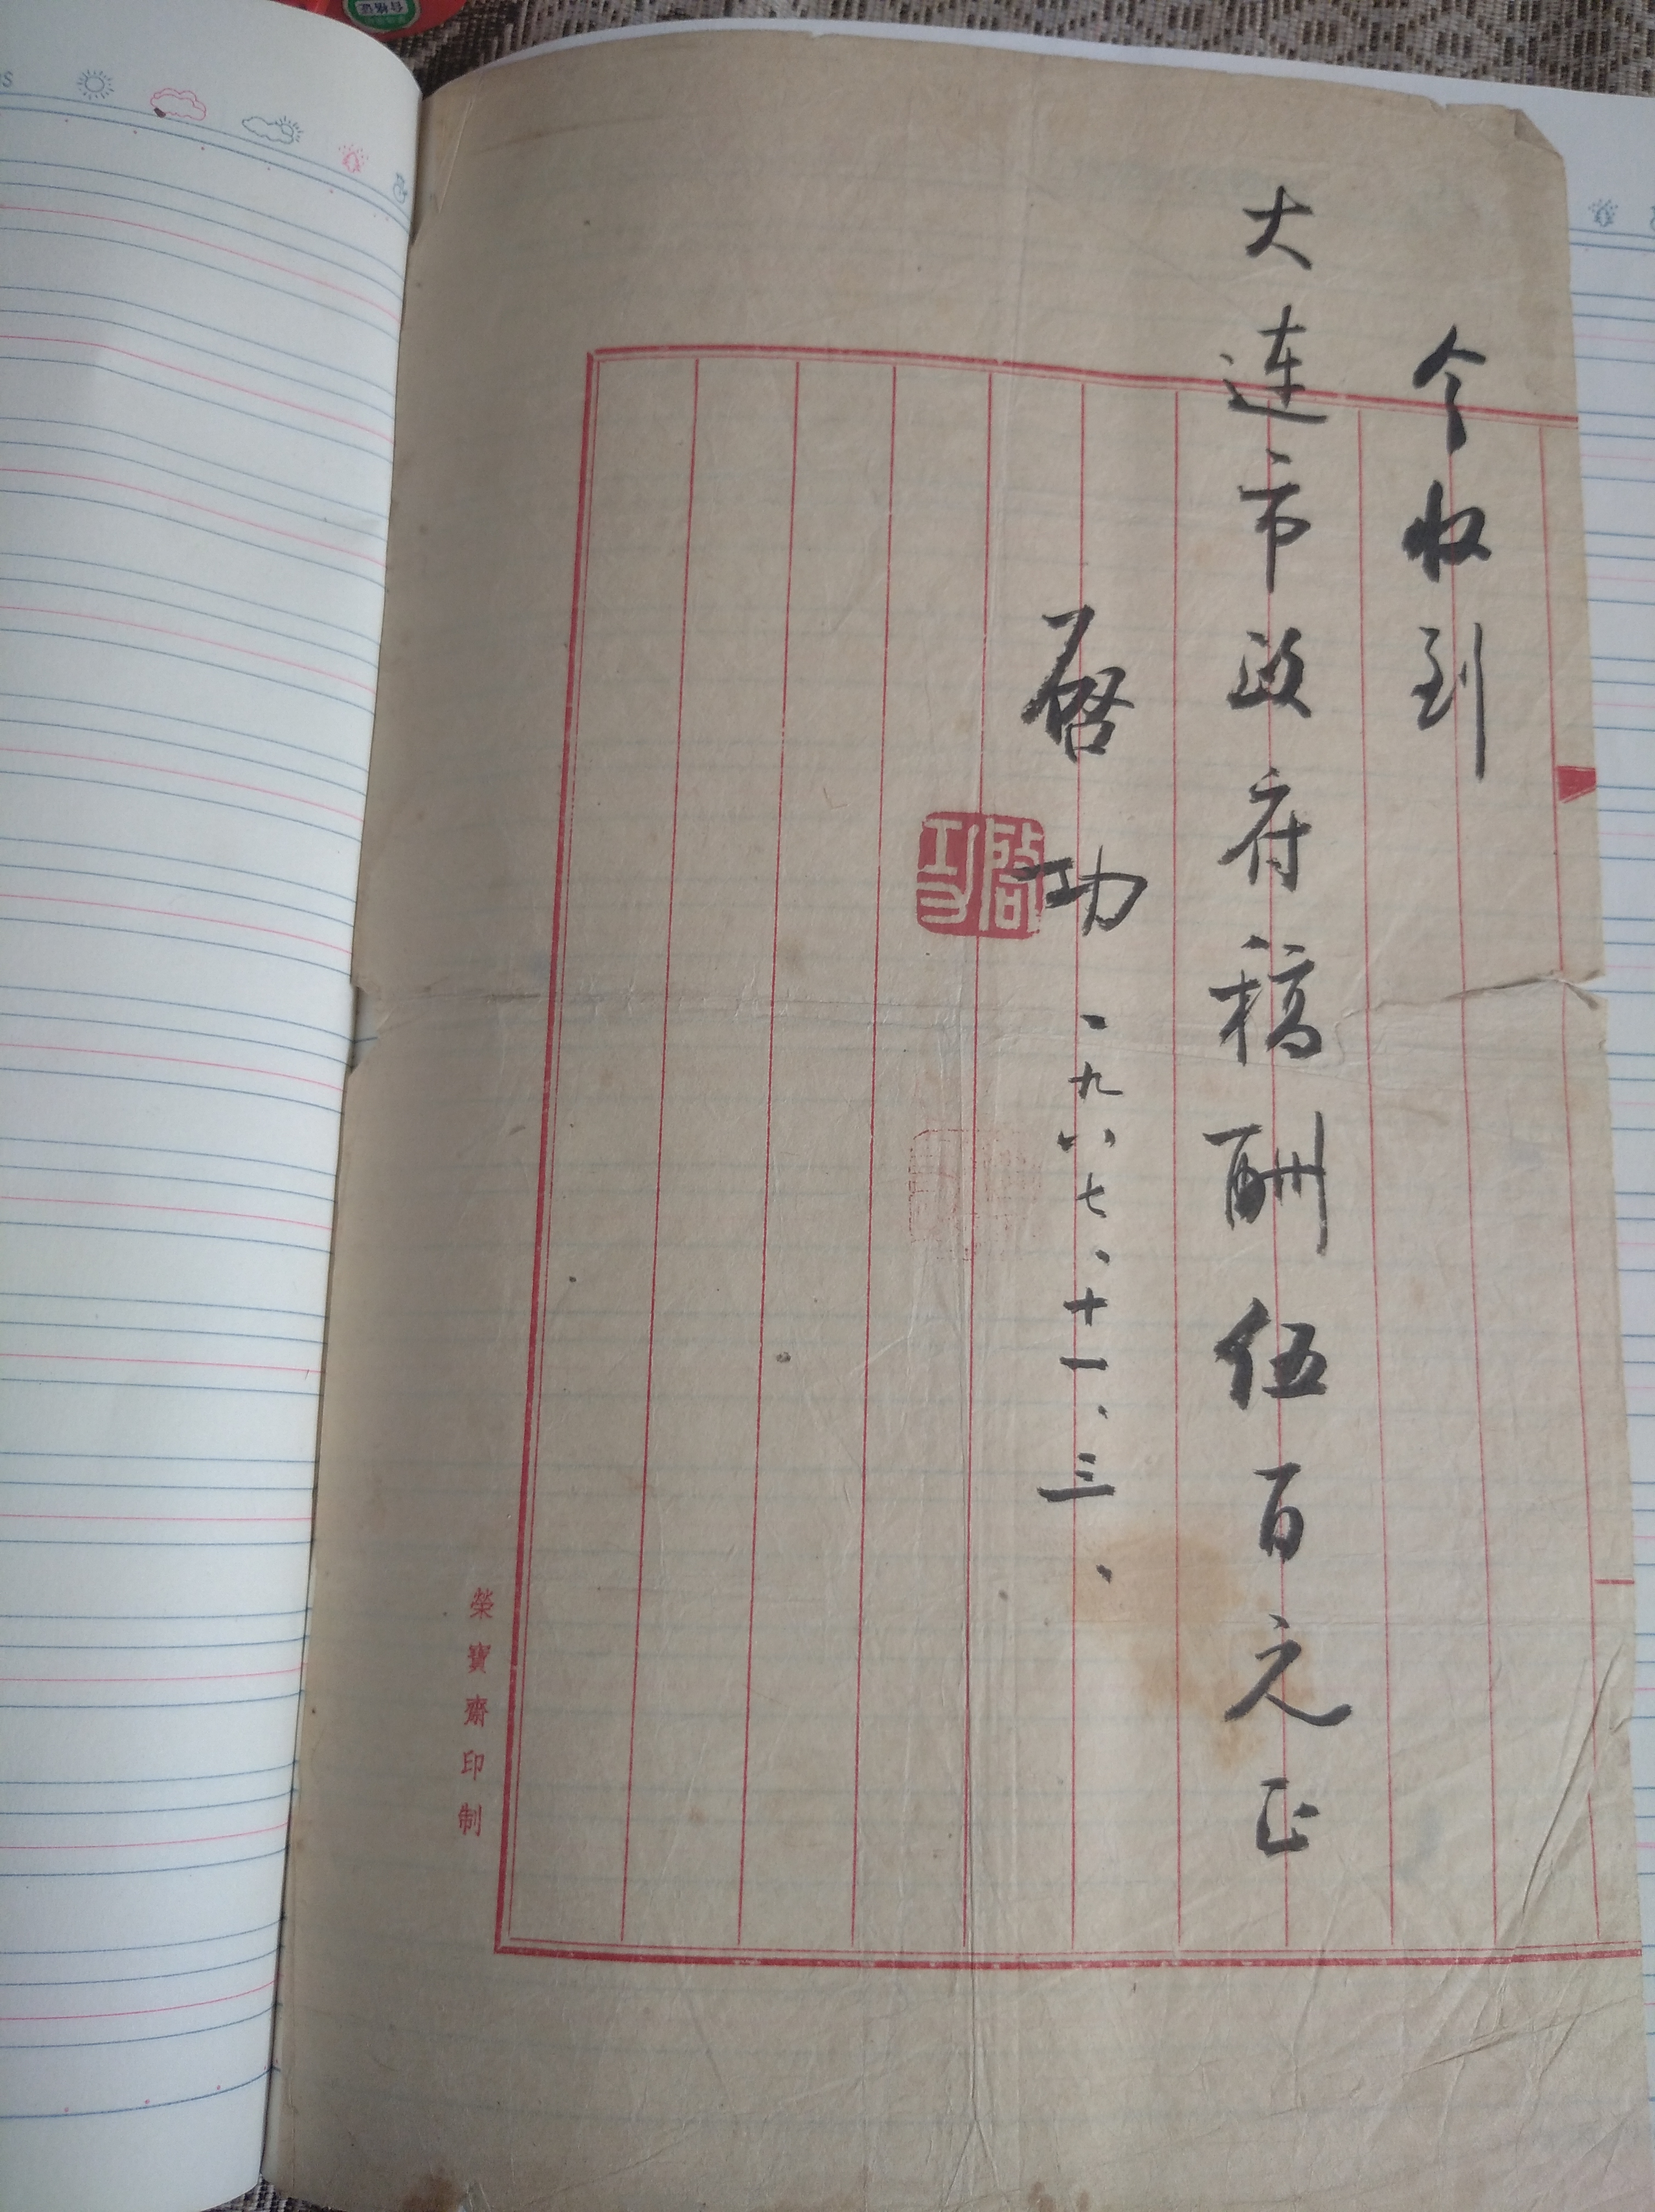 今收到
大连市政府稿酬伍百元正
启功
一九八七、十一、三、
启功
榮寶齋印制
合格证